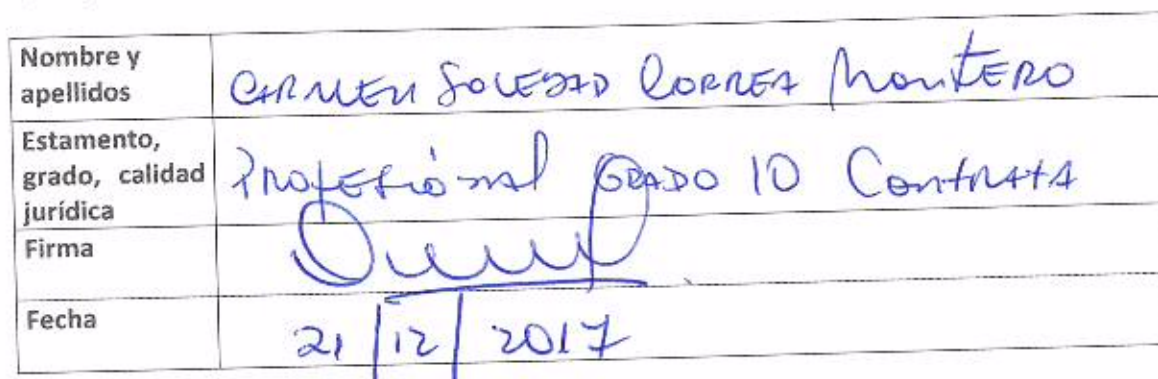 Nombre y
apellidos
CARMEN SOLEDAD CORREA MONTERO
Estamento,
grado, calidad
jurídica
Profesiónal GRADO 10 CONTRATA
Firma
Fecha
21/12/2017